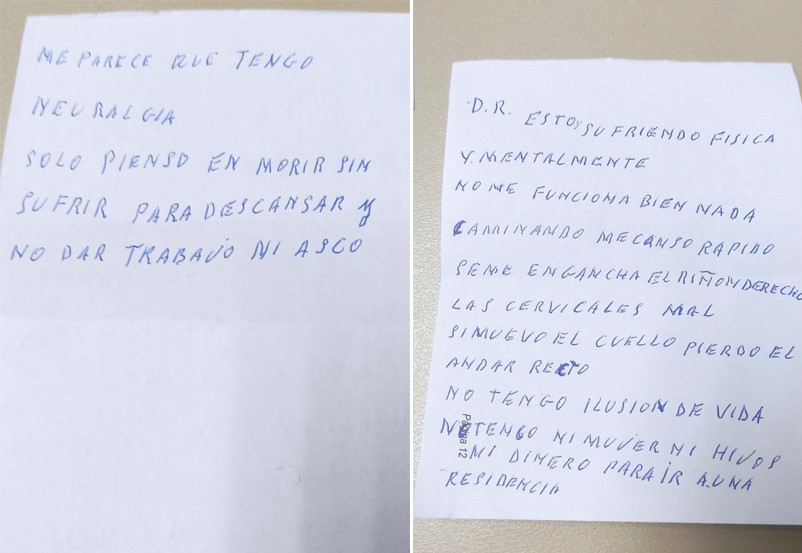 ME PARECE QUE TENGO
NEURALGIA
SOLO PIENSO EN MORIR SIN
SUFRIR PARA DESCANSAR Y
NO DAR TRABAJO NI ASCO
D.R. ESTOY SUFRIENDO FISICA
Y MENTALMENTE
NO ME FUNCIONA BIEN NADA
CAMINANDO ME CANSO RAPIDO
SE ME ENGANCHA EL RIÑON DERECHO
LAS CERVICALES MAL
SI MUEVO EL CUELLO PIERDO EL
ANDAR RECTO
NO TENGO ILUSION DE VIDA
NO TENGO NI MUJER NI HIJOS
NI DINERO PARA IR A UNA
RESIDENCIA
Página 12